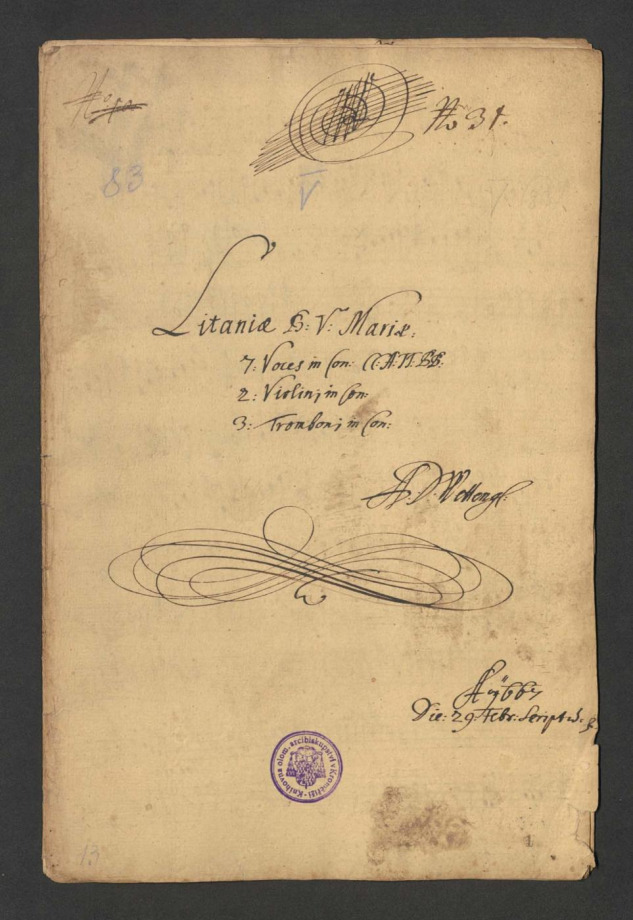 No 31.
83
V
Litaniæ B: V: Mariæ:
7: Voces in Con: CC: A: TT: BB:
2: Violini in Con:
3: Tromboni in Con:
A D
Die: 29 Febr:
Knihovna olom. arcibiskupství v Kroměříži
1
13